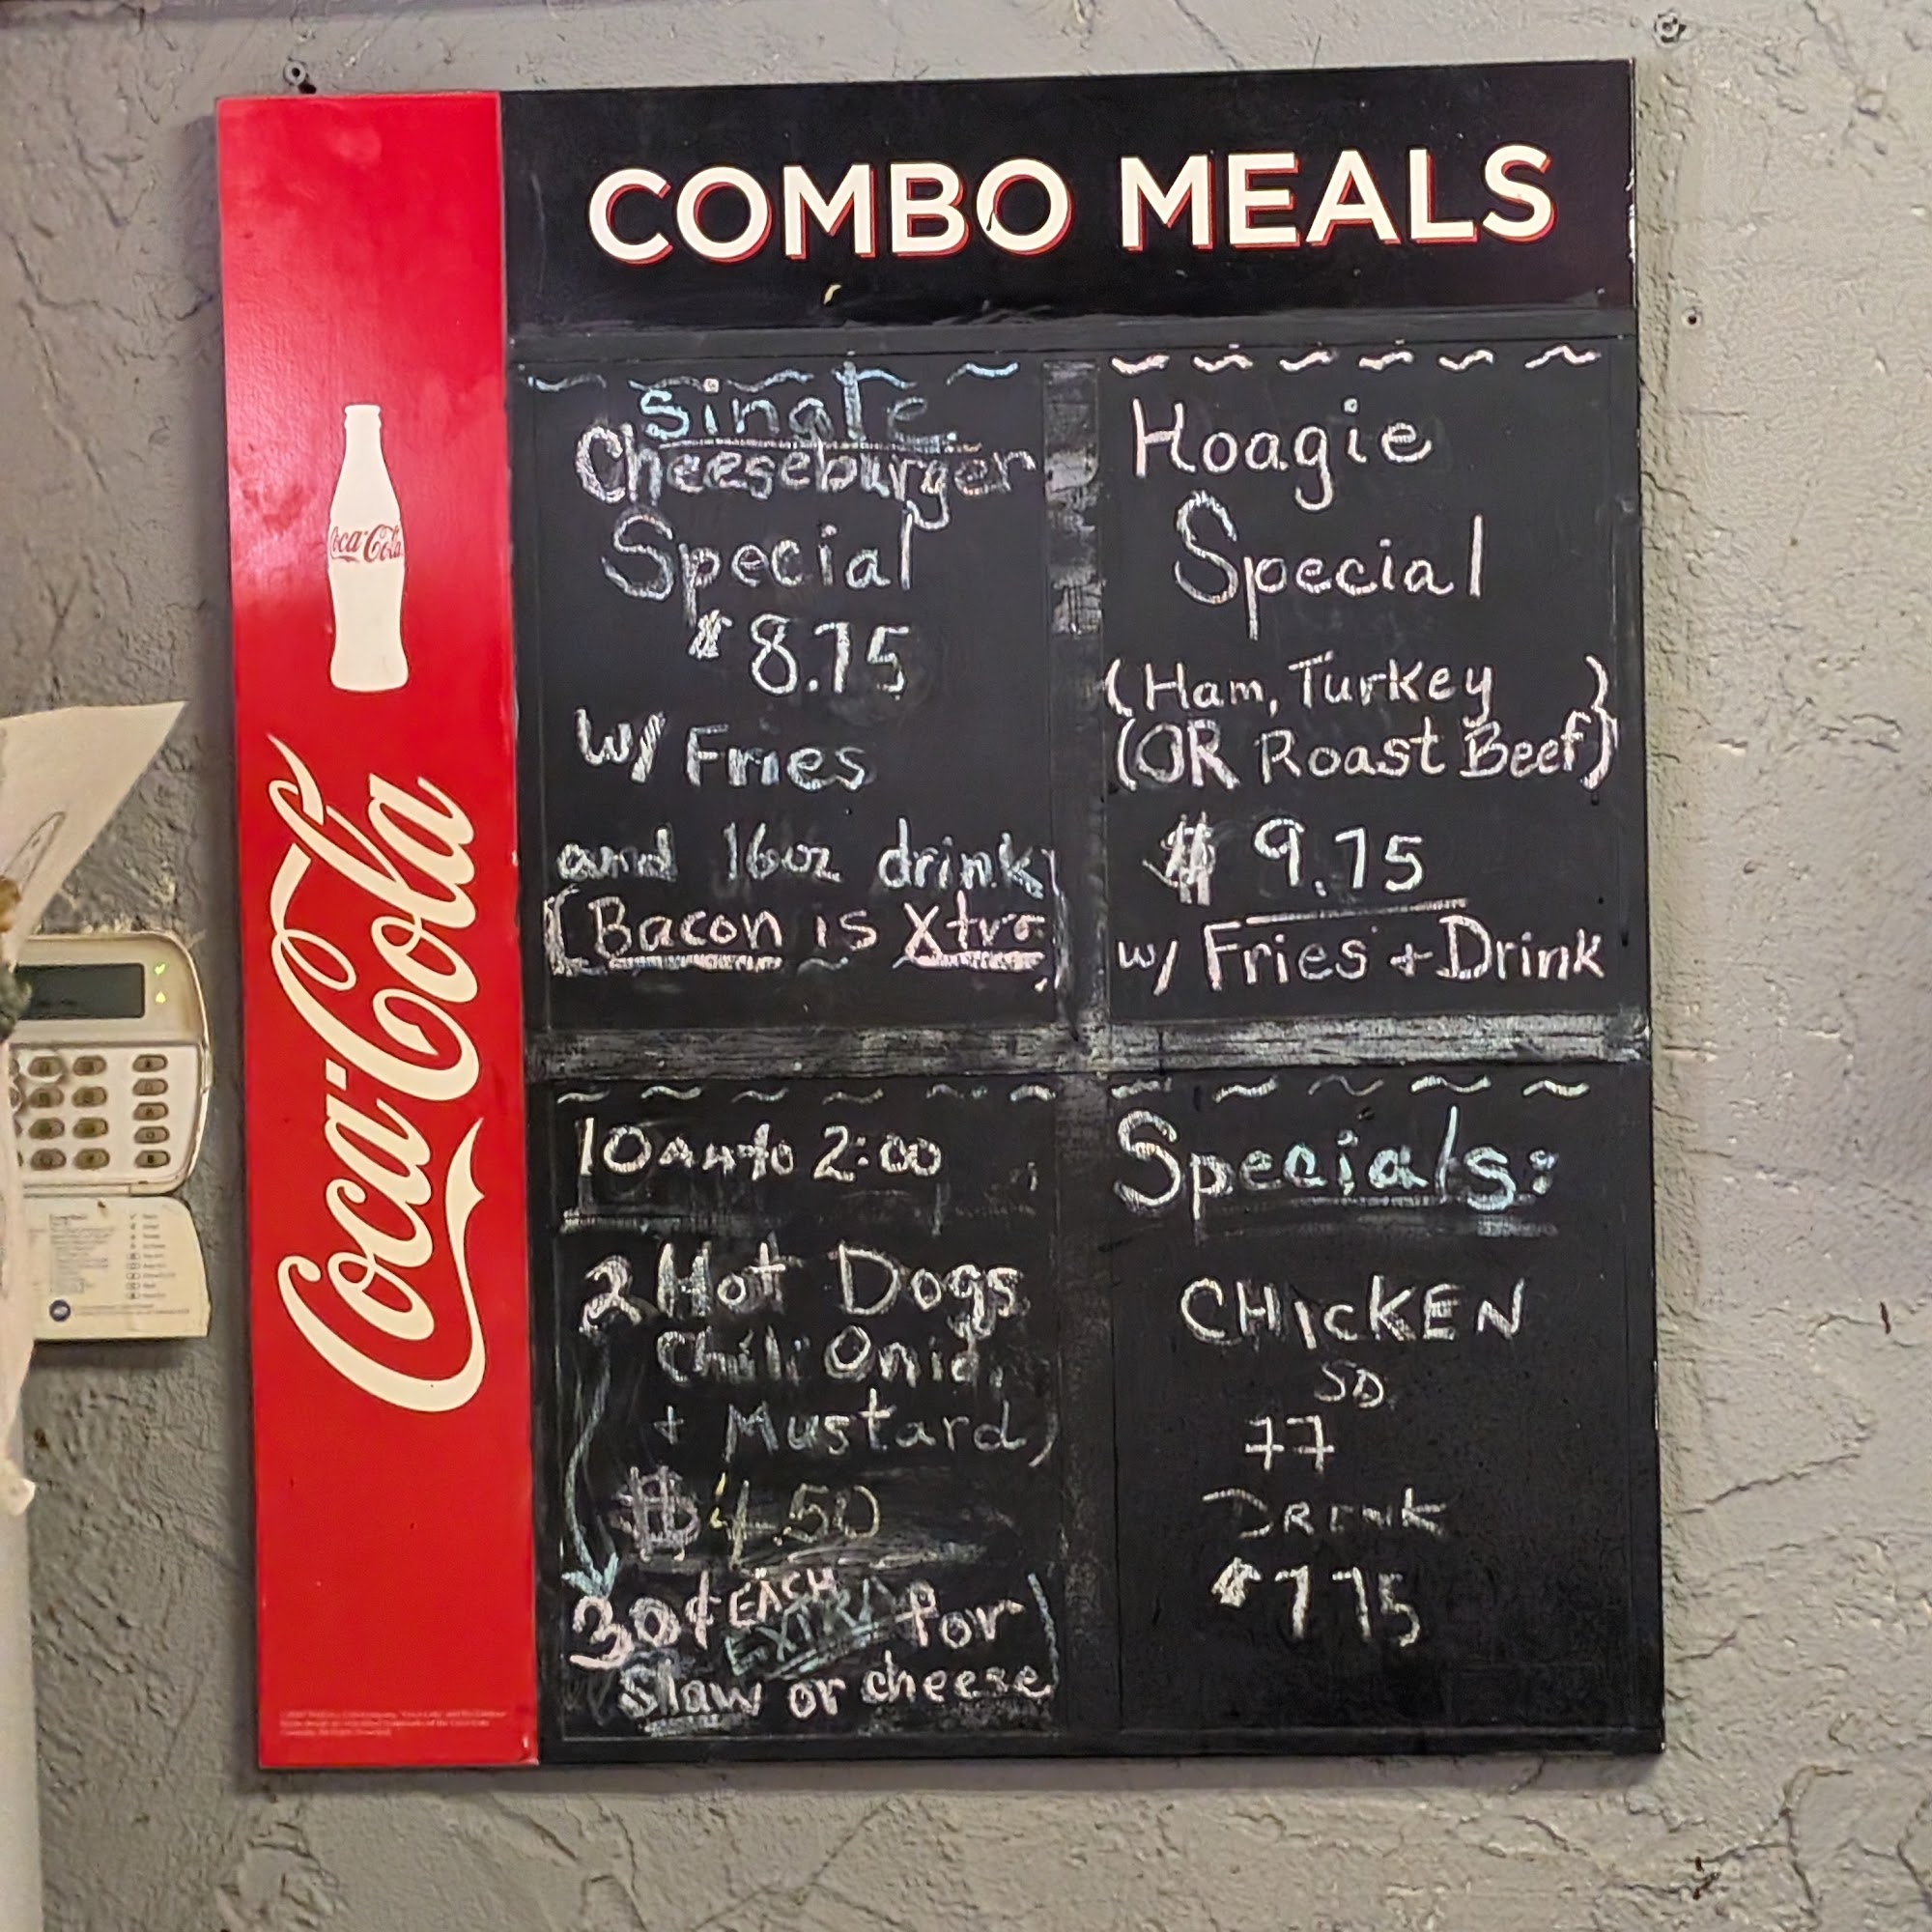 COMBO MEALS
Coca-Cola
Coca-Cola
Single
Cheeseburger
Special
$8.75
w/ Fries
and 16oz drink
(Bacon is Xtra)
Hoagie
Special
(Ham, Turkey)
(OR Roast Beef)
$9.75
w/ Fries + Drink
10am to 2:00
2 Hot Dogs
Chili Onio,
+ Mustard)
$4.50
30¢ EACH
EXTRA for
Slaw or cheese)
Specials:
CHICKEN
SD
FF
DRINK
$7.75